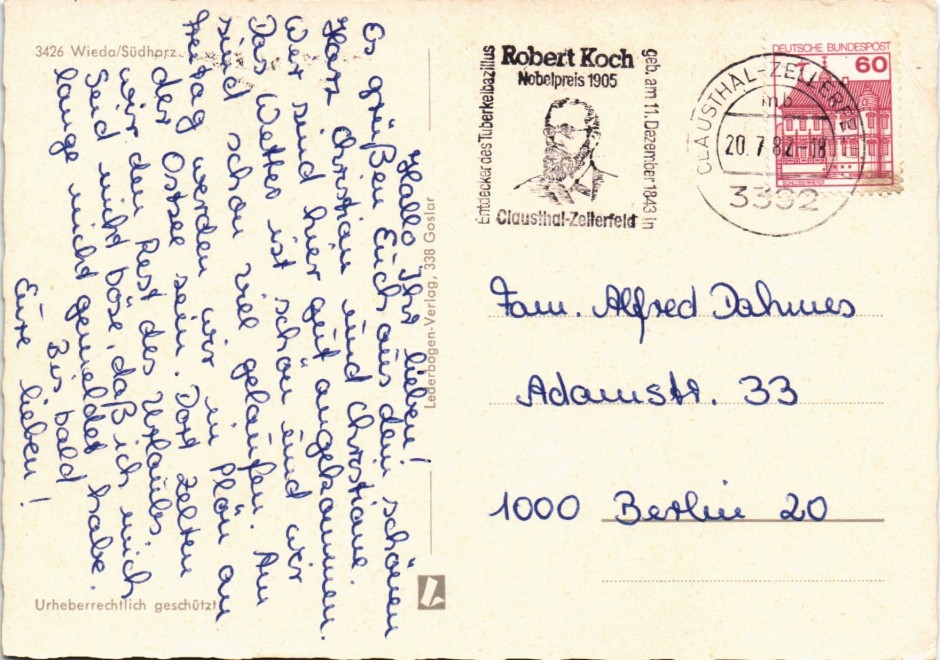 3426 Wieda/Südharz
Hallo Ihr lieben!
Es grüßen Euch aus dem schönen
Harz Christian und Christiane.
Wir sind hier gut angekommen.
Das Wetter ist schön und wir
sind schon viel gelaufen. Am
Freitag werden wir in Plön an
der Ostsee sein. Dort zelten
wir den Rest des Urlaubs.
Seid nicht böse, daß ich mich
lange nicht gemeldet habe.
Bis bald
Eure lieben!
Urheberrechtlich geschützt
Lederbogen-Verlag, 338 Goslar
Entdecker des Tuberkelbazillus
Robert Koch
Nobelpreis 1905
geb. am 11. Dezember 1843 in
Clausthal-Zellerfeld
CLAUSTHAL-ZELLERF
mb
20.7.82-18
3392
DEUTSCHE BUNDESPOST
60
Fam. Alfred Dahmes
Adamstr. 33
1000 Berlin 20